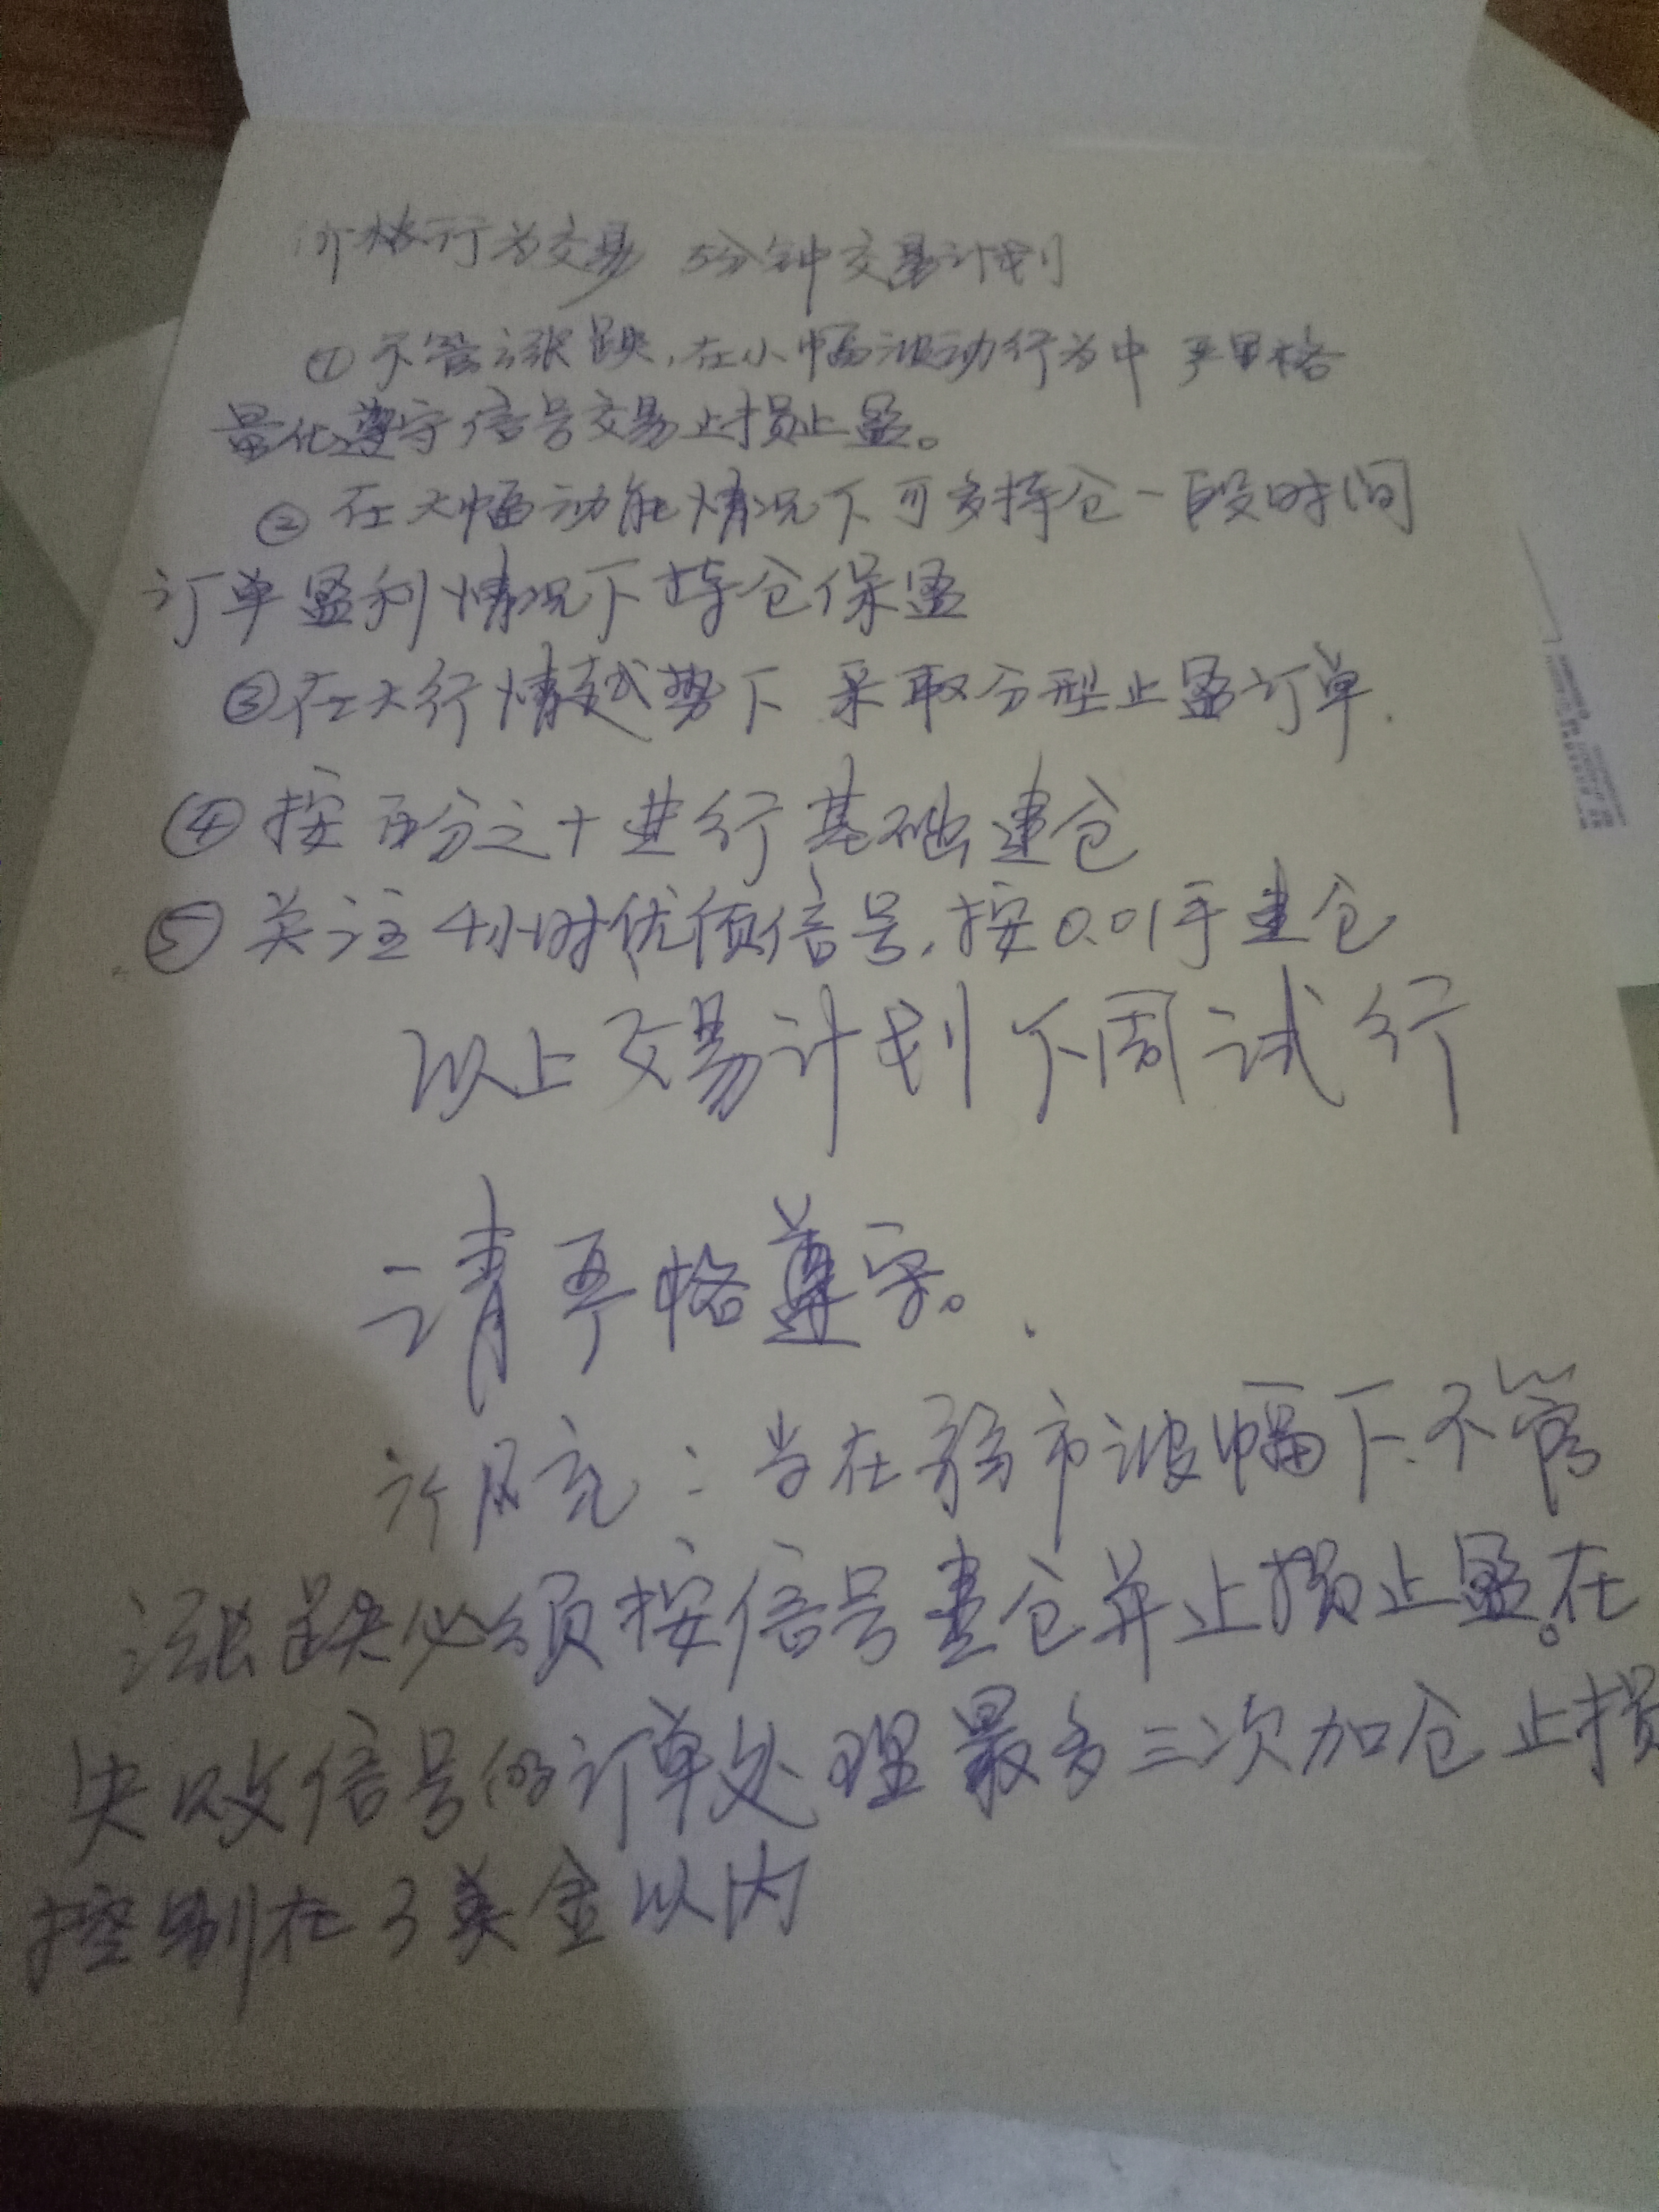 价格行为交易 5分钟交易计划
①不管涨跌,在小幅波动行为中 严格
量化遵守信号交易止损止盈。
②在大幅动能情况下可多持仓一段时间
订单盈利情况下持仓保盈
③在大行情趋势下 采取分型止盈订单.
④按百分之十进行基础建仓
⑤关注4小时优质信号,按0.01手建仓
以上交易计划下周试行
请严格遵守。
补充:当在弱市波幅下.不管
涨跌必须按信号建仓并止损止盈。在
失败信号的订单处理最多三次加仓止损
控制在3美金以内